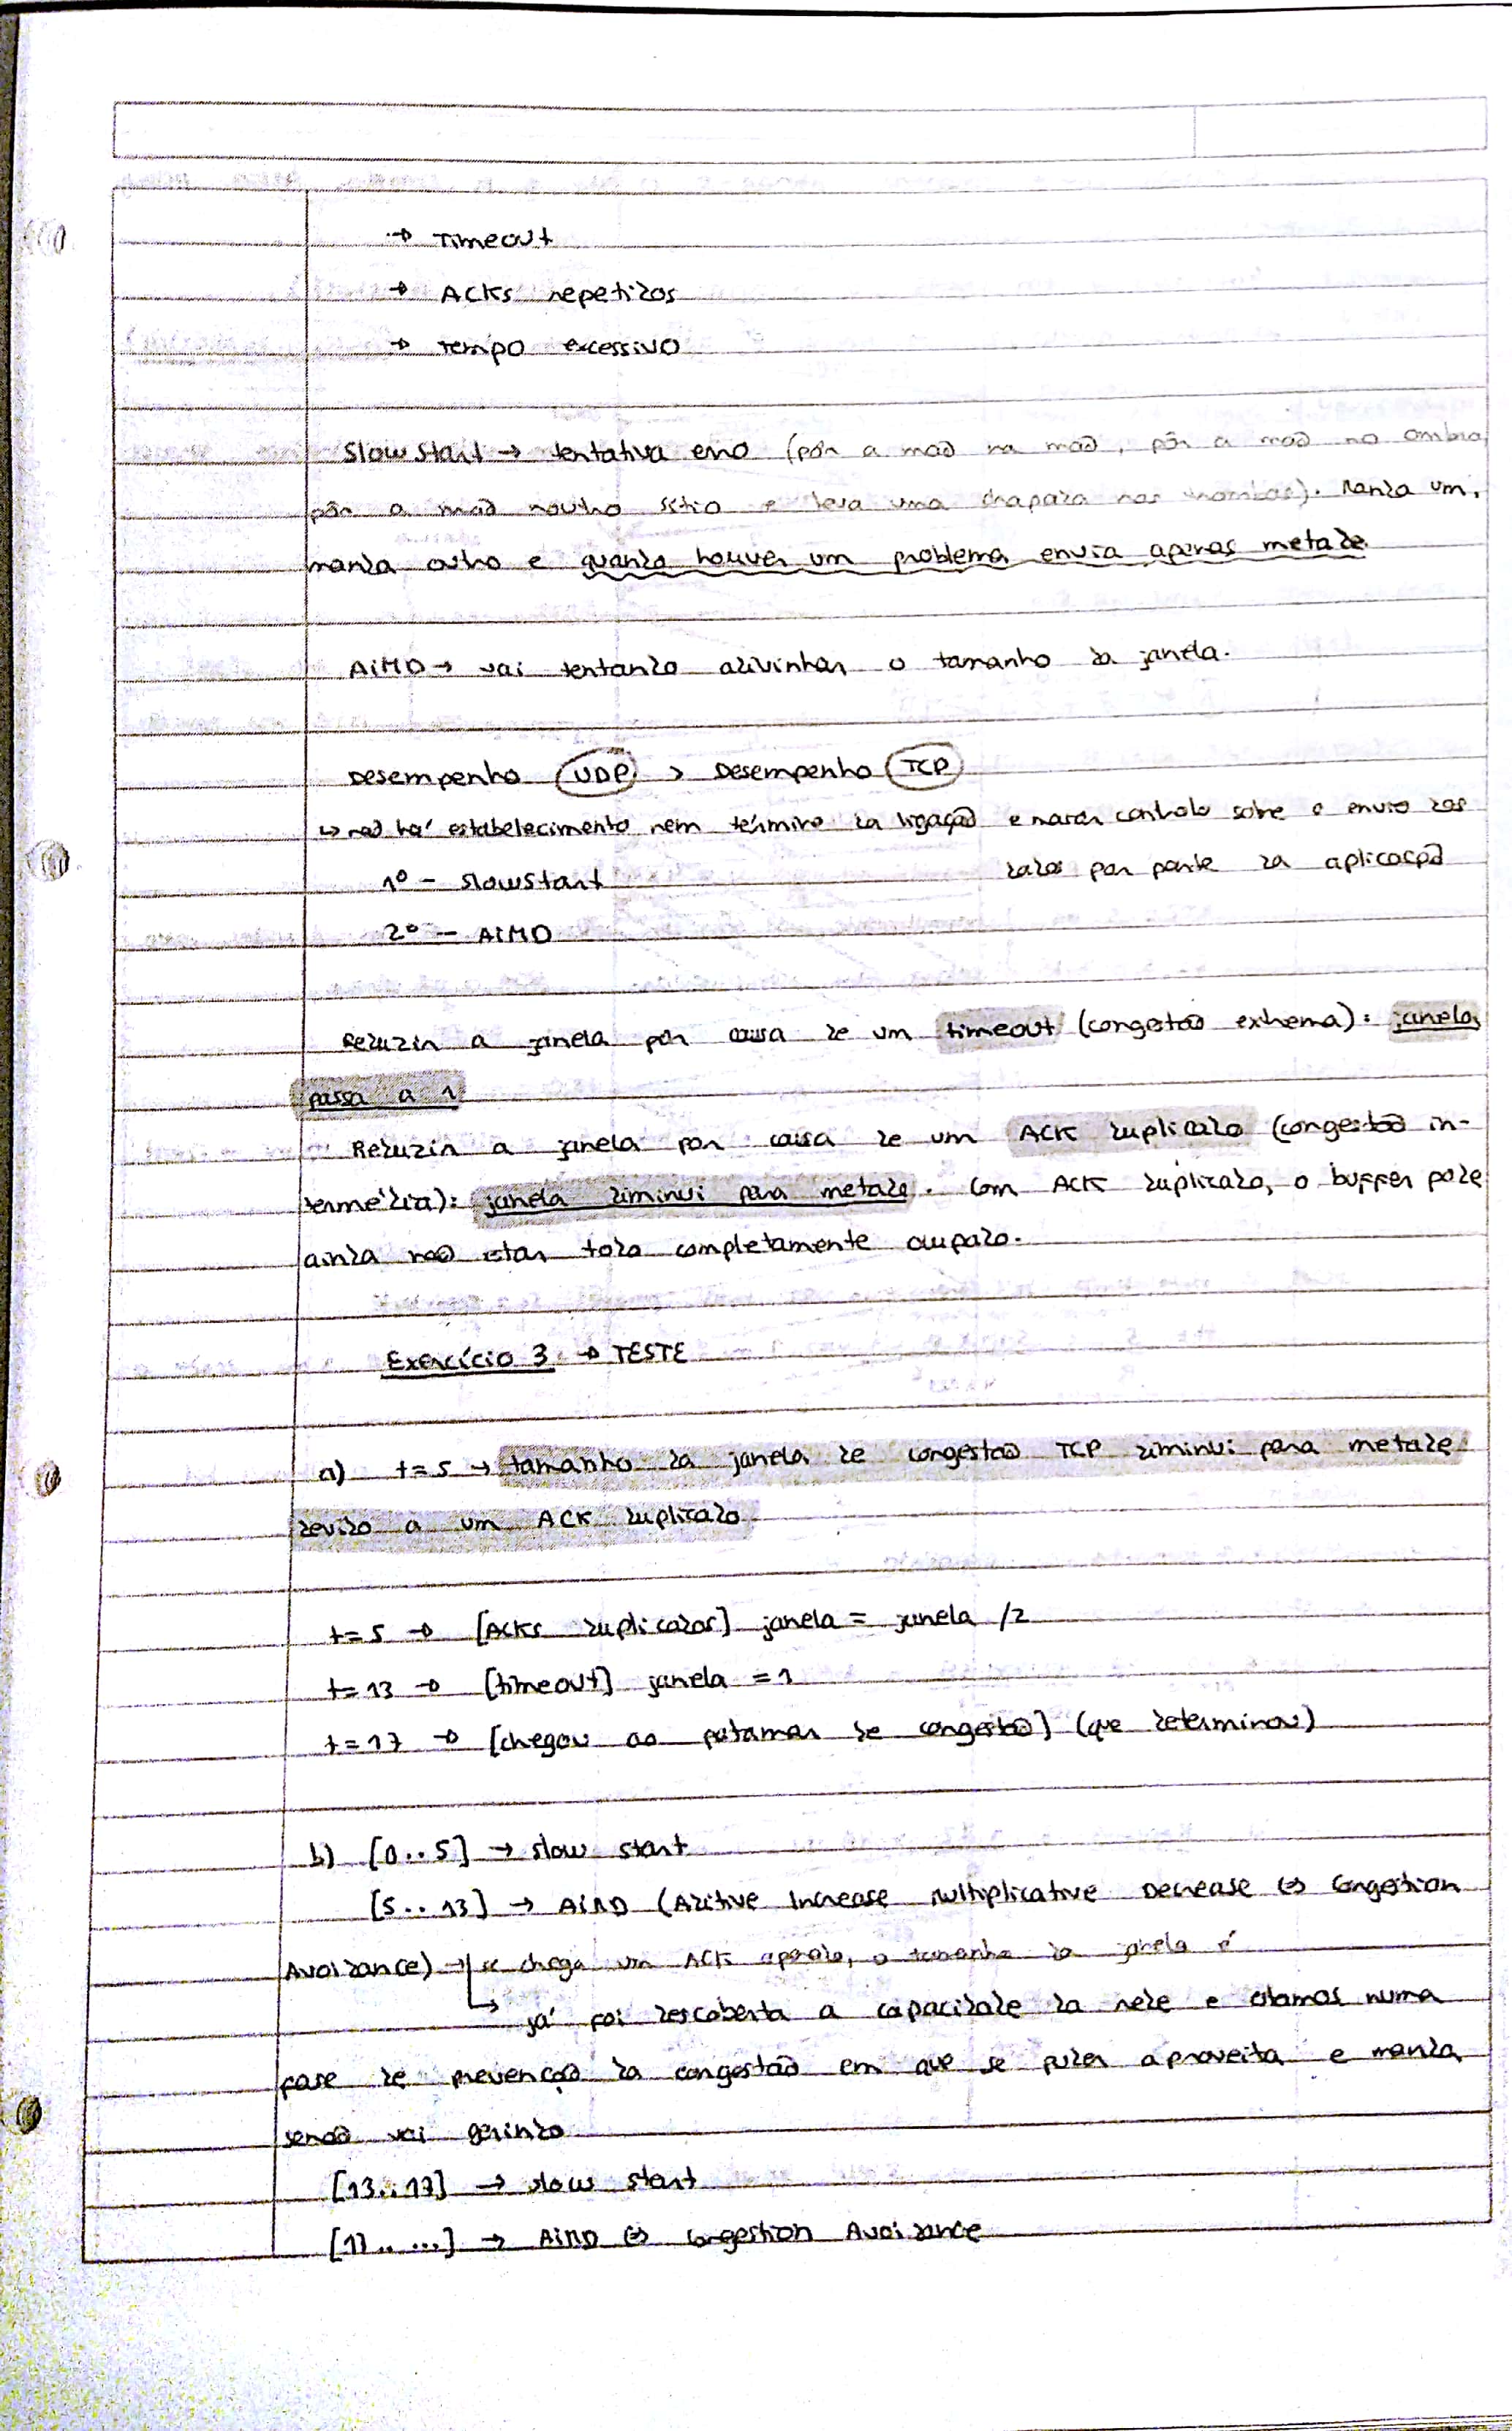 → Timeout
→ ACKs repetidos
→ tempo excessivo
Slow Start → tentativa erro (pôr a mão na mão, pôr a mão no ombro,
pôr a mão noutro sítio e leva uma chapada nas trombas). Manda um,
manda outro e quando houver um problema envia apenas metade
AIMD → vai tentando adivinhar o tamanho da janela.
Desempenho UDP > Desempenho TCP
↳ não há estabelecimento nem término da ligação e maior controlo sobre o envio dos
dados por parte da aplicação
1º - slowstart
2º - AIMD
Reduzir a janela por causa de um timeout (congestão extrema): janela
passa a 1
Reduzir a janela por causa de um ACK duplicado (congestão in-
termédia): janela diminui para metade. Com ACK duplicado, o buffer pode
ainda não estar todo completamente ocupado.
Exercício 3 → TESTE
a) t=5 → tamanho da janela de congestão TCP diminui para metade
devido a um ACK duplicado
t=5 → [ACKs duplicados] janela = janela /2
t=13 → [timeout] janela = 1
t=17 → [chegou ao patamar de congestão] (que determinou)
b) [0..5] → slow start
[5..13] → AIMD (Aditive Increase Multiplicative Decrease ⇔ Congestion
Avoidance) → se chega um ACK, o tamanho da janela é
↳ já foi descoberta a capacidade da rede e estamos numa
fase de prevenção da congestão em que se puder aproveita e manda
senão vai gerindo
[13..17] → slow start
[17.. ...] → AIMD ⇔ Congestion Avoidance